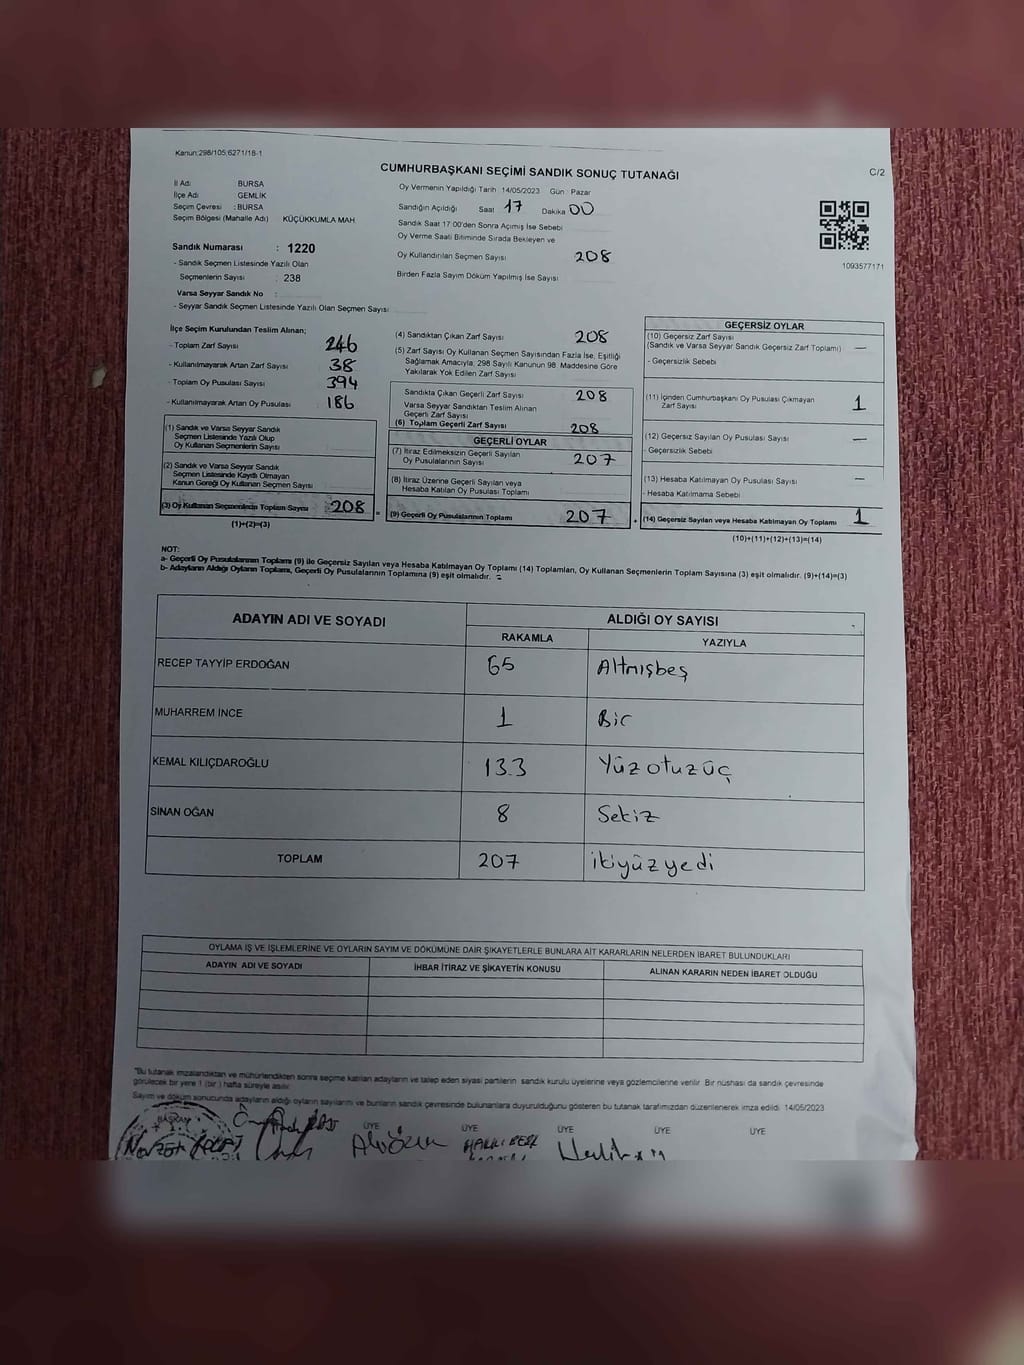 Kanun:298/105;6271/18-1
CUMHURBAŞKANI SEÇİMİ SANDIK SONUÇ TUTANAĞI
C/2
İl Adı BURSA
İlçe Adı GEMLİK
Seçim Çevresi : BURSA
Seçim Bölgesi (Mahalle Adı) KÜÇÜKKUMLA MAH.
Oy Vermenin Yapıldığı Tarih 14/05/2023 Gün : Pazar
Sandığın Açıldığı Saat 17 Dakika 00
Sandık Saat 17:00'den Sonra Açımış İse Sebebi
Oy Verme Saati Bitiminde Sırada Bekleyen ve
Oy Kullandırılan Seçmen Sayısı 208
Birden Fazla Sayım Döküm Yapılmış İse Sayısı
1093577171
Sandık Numarası : 1220
- Sandık Seçmen Listesinde Yazılı Olan
Seçmenlerin Sayısı : 238
Varsa Seyyar Sandık No :
- Seyyar Sandık Seçmen Listesinde Yazılı Olan Seçmen Sayısı
İlçe Seçim Kurulundan Teslim Alınan;
- Toplam Zarf Sayısı 246
- Kullanılmayarak Artan Zarf Sayısı 38
- Toplam Oy Pusulası Sayısı 394
- Kullanılmayarak Artan Oy Pusulası 186
(1) Sandık ve Varsa Seyyar Sandık
Seçmen Listesinde Yazılı Olup
Oy Kullanan Seçmenlerin Sayısı
(2) Sandık ve Varsa Seyyar Sandık
Seçmen Listesinde Kayıtlı Olmayan
Kanun Gereği Oy Kullanan Seçmen Sayısı
(3) Oy Kullanan Seçmenlerin Toplam Sayısı 208 =
(1)+(2)=(3)
(4) Sandıktan Çıkan Zarf Sayısı 208
(5) Zarf Sayısı Oy Kullanan Seçmen Sayısından Fazla İse, Eşitliği
Sağlamak Amacıyla, 298 Sayılı Kanunun 98. Maddesine Göre
Yakılarak Yok Edilen Zarf Sayısı
Sandıkta Çıkan Geçerli Zarf Sayısı 208
Varsa Seyyar Sandıktan Teslim Alınan
Geçerli Zarf Sayısı
(6) Toplam Geçerli Zarf Sayısı 208
GEÇERLİ OYLAR
(7) İtiraz Edilmeksizin Geçerli Sayılan
Oy Pusulalarının Sayısı 207
(8) İtiraz Üzerine Geçerli Sayılan veya
Hesaba Katılan Oy Pusulası Toplamı
(9) Geçerli Oy Pusulalarının Toplamı 207 +
GEÇERSİZ OYLAR
(10) Geçersiz Zarf Sayısı
(Sandık ve Varsa Seyyar Sandık Geçersiz Zarf Toplamı) —
- Geçersizlik Sebebi
(11) İçinden Cumhurbaşkanı Oy Pusulası Çıkmayan
Zarf Sayısı 1
(12) Geçersiz Sayılan Oy Pusulası Sayısı —
- Geçersizlik Sebebi
(13) Hesaba Katılmayan Oy Pusulası Sayısı —
- Hesaba Katılmama Sebebi
(14) Geçersiz Sayılan veya Hesaba Katılmayan Oy Toplamı 1
(10)+(11)+(12)+(13)=(14)
NOT:
a- Geçerli Oy Pusulalarının Toplamı (9) ile Geçersiz Sayılan veya Hesaba Katılmayan Oy Toplamı (14) Toplamları, Oy Kullanan Seçmenlerin Toplam Sayısına (3) eşit olmalıdır. (9)+(14)=(3)
b- Adayların Aldığı Oyların Toplamı, Geçerli Oy Pusulalarının Toplamına (9) eşit olmalıdır.
ADAYIN ADI VE SOYADI ALDIĞI OY SAYISI
RAKAMLA YAZIYLA
RECEP TAYYİP ERDOĞAN 65 Altmışbeş
MUHARREM İNCE 1 Bir
KEMAL KILIÇDAROĞLU 133 Yüzotuzüç
SİNAN OĞAN 8 Sekiz
TOPLAM 207 ikiyüzyedi
OYLAMA İŞ VE İŞLEMLERİNE VE OYLARIN SAYIM VE DÖKÜMÜNE DAİR ŞİKAYETLERLE BUNLARA AİT KARARLARIN NELERDEN İBARET BULUNDUKLARI
ADAYIN ADI VE SOYADI İHBAR İTİRAZ VE ŞİKAYETİN KONUSU ALINAN KARARIN NEDEN İBARET OLDUĞU
*Bu tutanak imzalandıktan ve mühürlendikten sonra seçime katılan adayların ve talep eden siyasi partilerin sandık kurulu üyelerine veya gözlemcilerine verilir. Bir nüshası da sandık çevresinde
görülecek bir yere 1 (bir) hafta süreyle asılır.
Sayım ve döküm sonucunda adayların aldığı oyların sayılarını ve bunların sandık çevresinde bulunanlara duyurulduğunu gösteren bu tutanak tarafımızdan düzenlenerek imza edildi. 14/05/2023
BAŞKAN ÜYE ÜYE ÜYE ÜYE ÜYE